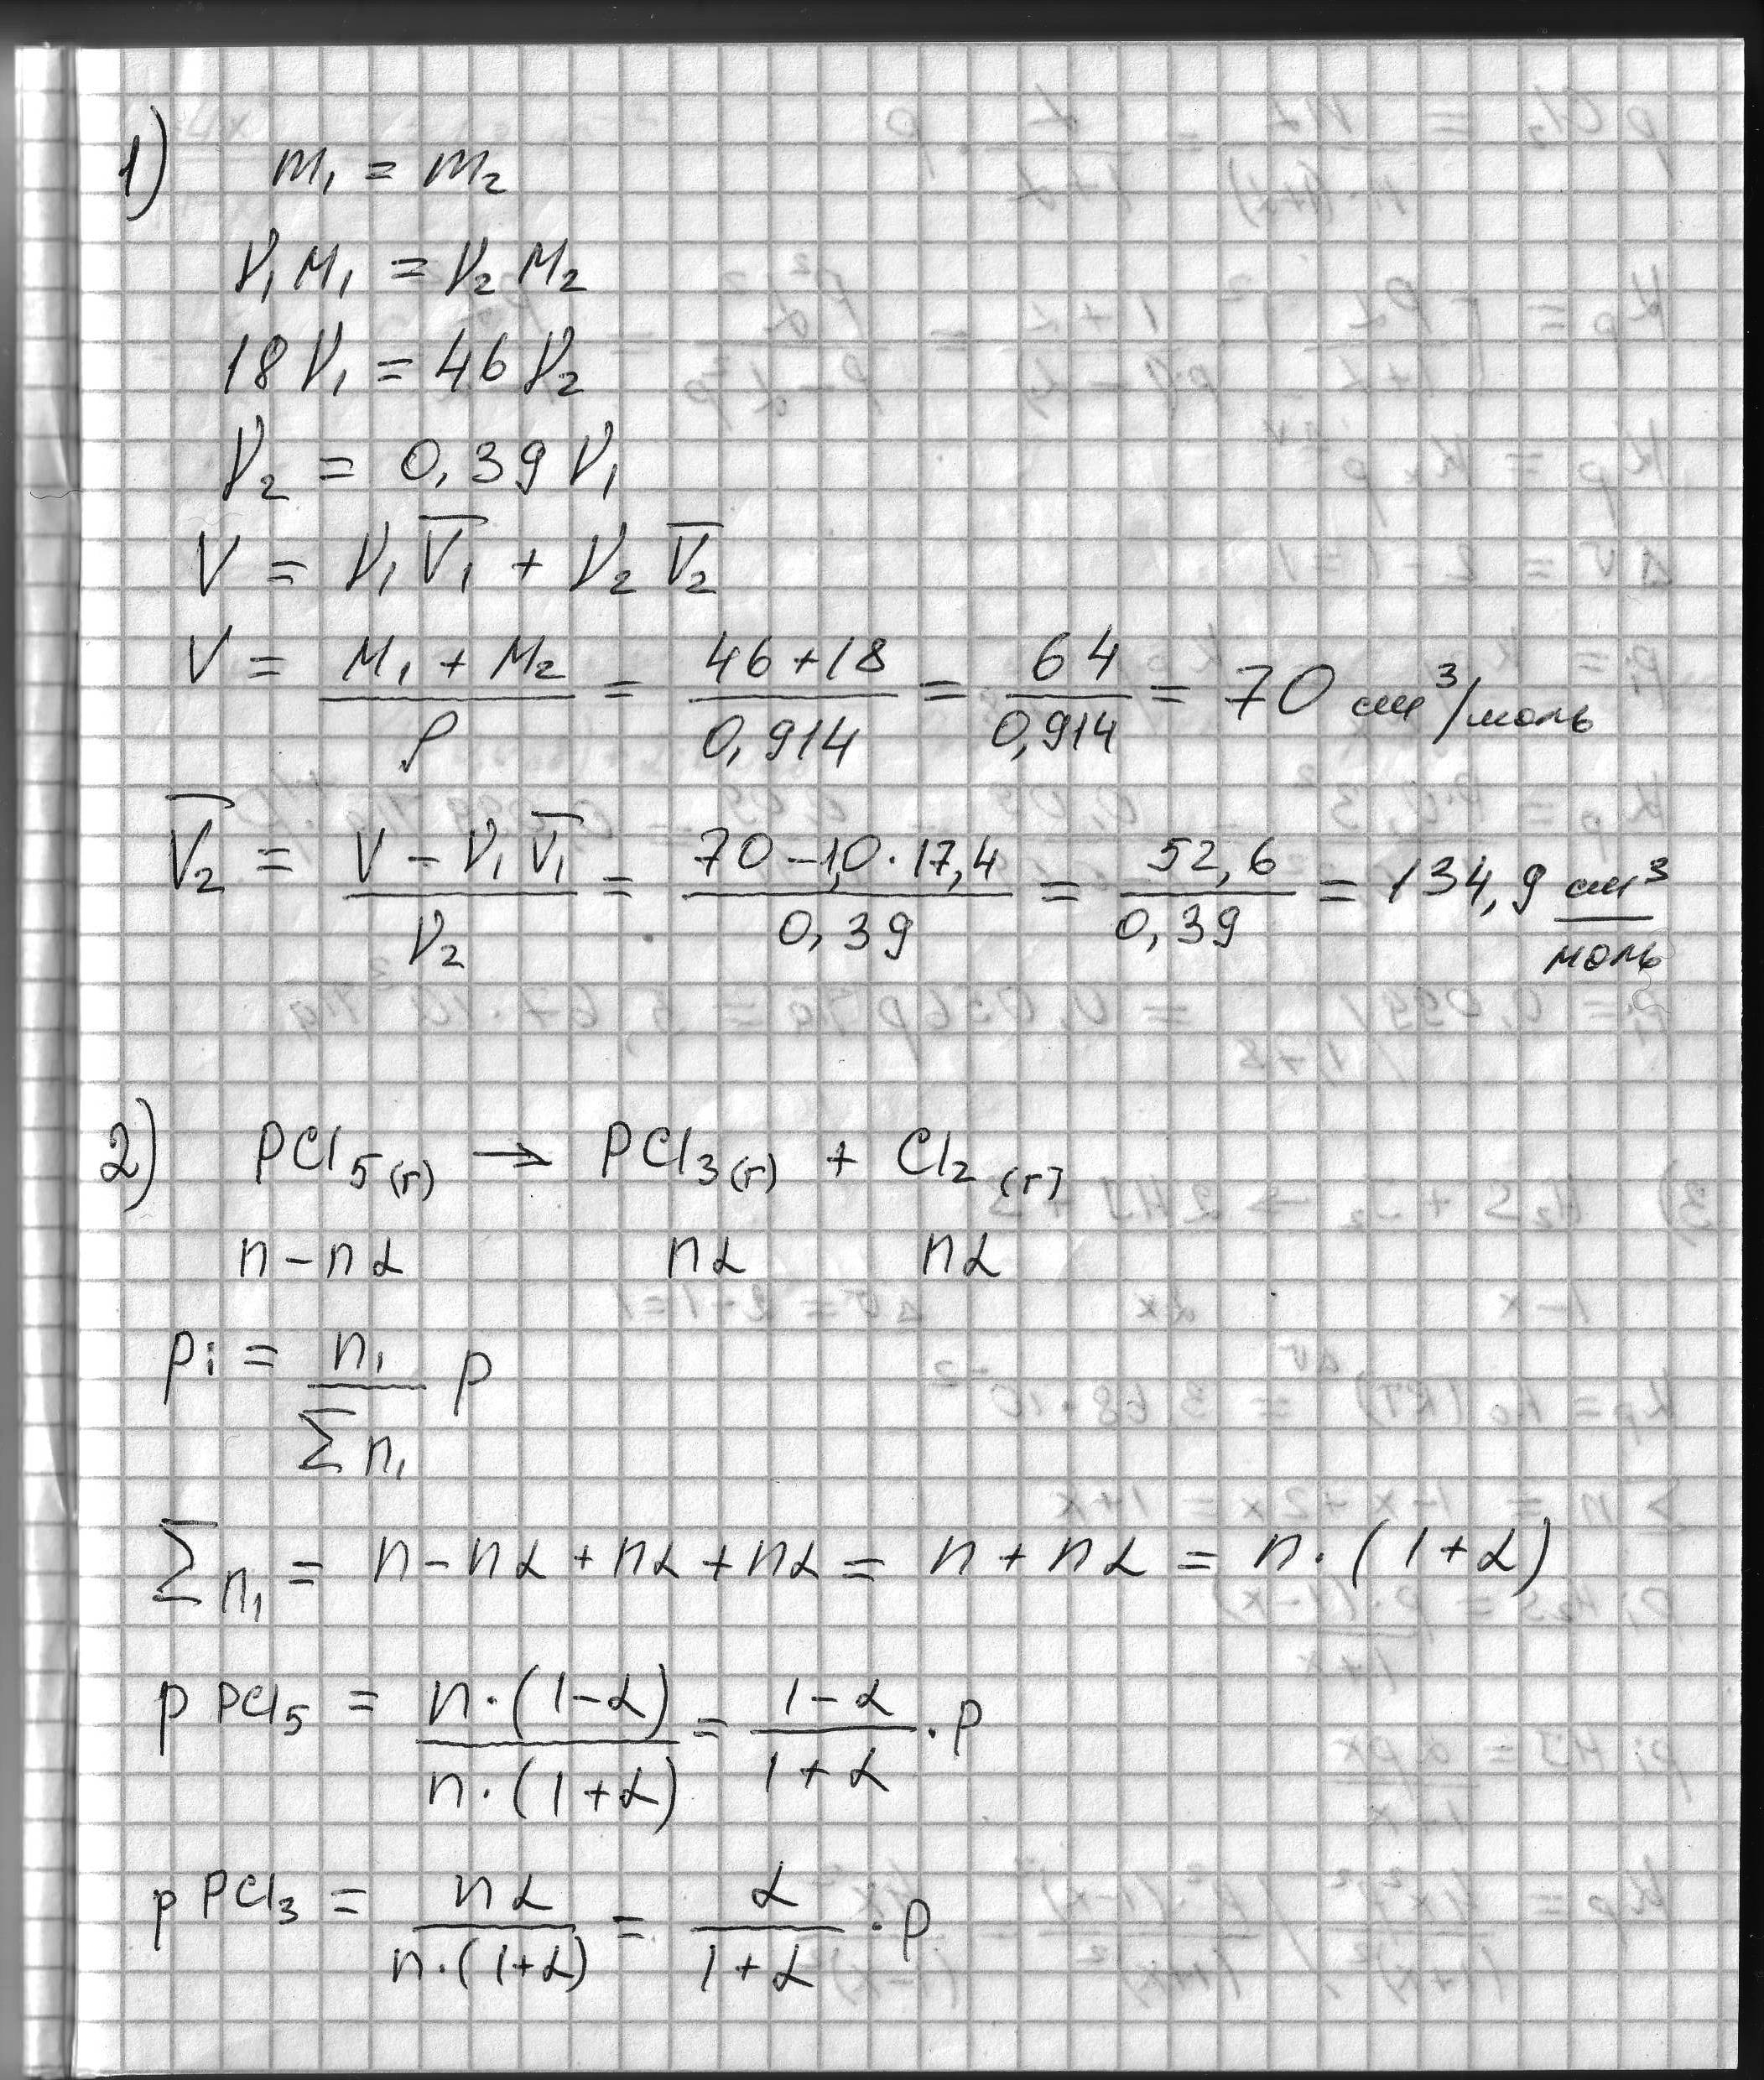 1) m₁ = m₂
ν₁M₁ = ν₂M₂
18ν₁ = 46ν₂
ν₂ = 0,39ν₁
V = ν₁V̅₁ + ν₂V̅₂
V = (M₁ + M₂)/ρ = (46+18)/0,914 = 64/0,914 = 70 см³/моль
V̅₂ = (V − ν₁V̅₁)/ν₂ = (70 − 1,0·17,4)/0,39 = 52,6/0,39 = 134,9 см³/моль
2) PCl₅(г) → PCl₃(г) + Cl₂(г)
n − nα nα nα
pi = n₁/Σn₁ p
Σn₁ = n − nα + nα + nα = n + nα = n·(1+α)
p PCl₅ = n·(1−α)/n·(1+α) = (1−α)/(1+α) · p
p PCl₃ = nα/n·(1+α) = α/(1+α) · p